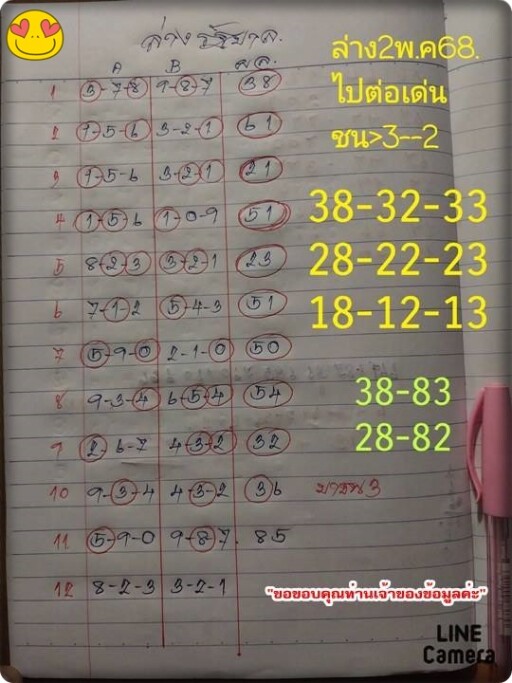 ล่าง รัฐบาล.
ล่าง2พ.ค68.
ไปต่อเด่น
ชน>3--2
A B ผล.
1 3-7-8 9-8-7 38
2 9-5-6 3-2-1 61
3 1-5-6 3-2-1 21
4 1-5-6 1-0-9 51
5 8-2-3 3-2-1 23
6 7-1-2 5-4-3 51
7 5-9-0 2-1-0 50
8 9-3-4 6-5-4 54
9 2-6-7 4-3-2 32
10 9-3-4 4-3-2 36
11 5-9-0 9-8-7. 85
12 8-2-3 3-2-1
38-32-33
28-22-23
18-12-13
38-83
28-82
"ขอขอบคุณท่านเจ้าของข้อมูลค่ะ"
LINE
Camera